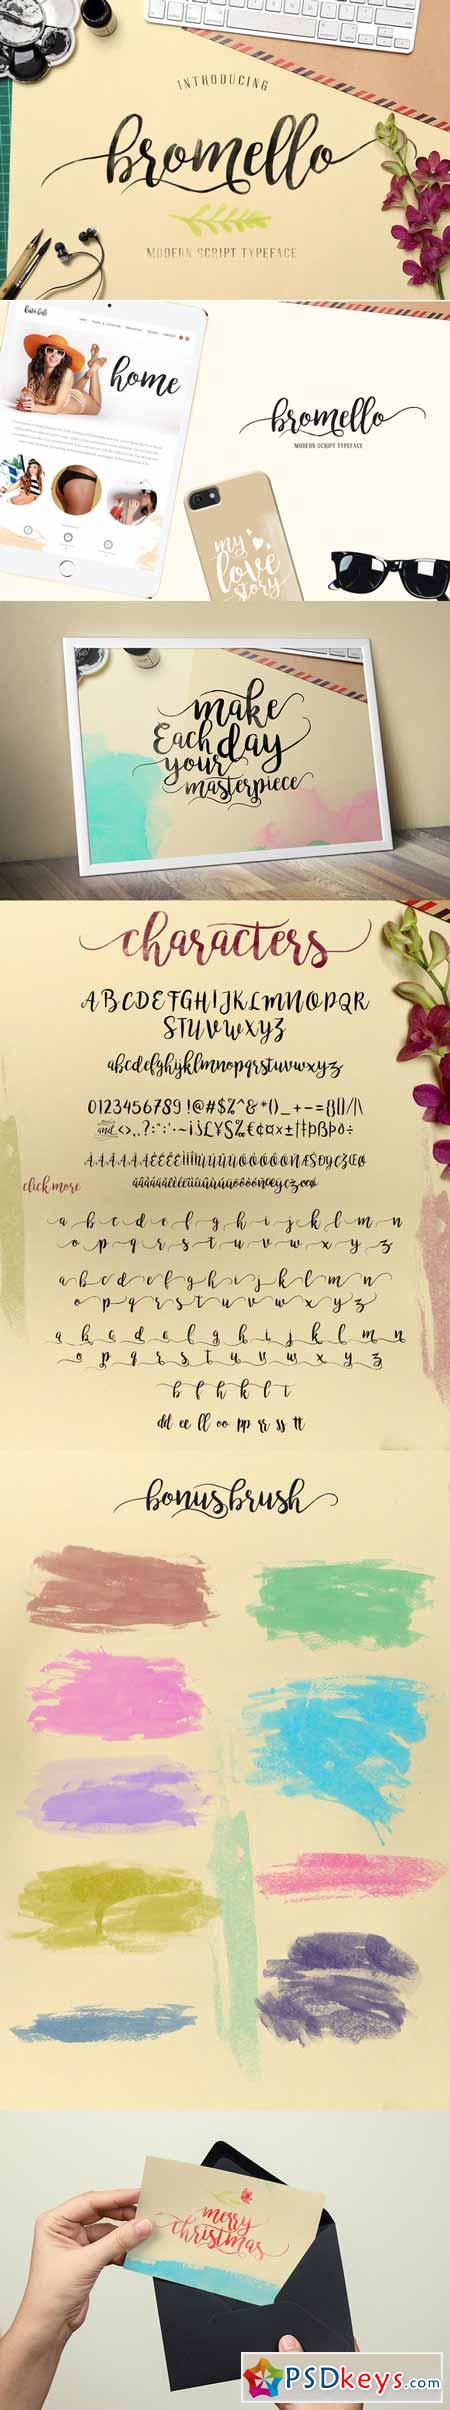 INTRODUCING
bromello
MODERN SCRIPT TYPEFACE
home
bromello
MODERN SCRIPT TYPEFACE
my
love
story
make
Each day
your
masterpiece
characters
ABCDEFGHIJKLMNOPQR
STUVWXYZ
abcdefghijklmnopqrstuvwxyz
0123456789!@#$%^&*()_+-={}[]|/\
click more
a b c d e f g h i j k l m n
o p q r s t u v w x y z
a b c d e f g h i j k l m n
o p q r s t u v w x y z
a b c d e f g h i j k l m n
o p q r s t u v w x y z
b f h k l t
dd ee ll oo pp rr ss tt
bonus brush
merry
christmas
PSDkeys.com